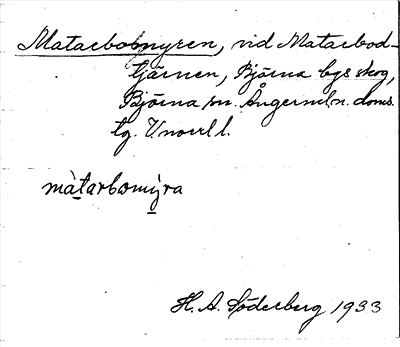 Matarbobmyren, vid Matarbod-
tjärnen, Björna bys skog,
Björna sn. Ångerml. n. doms.
tg. V.norrl l.
màtarbomy̱ra
H. A. Söderberg 1933